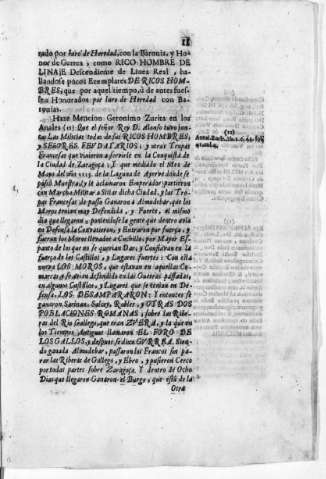 11
rado por Juro de Heredad, con la Baronia, y Ho-
nor de Gurrea, como RICO HOMBRE DE
LINAJE Descendiente de Linea Real, ha-
llandose pocos Exemplares DE RICOS HOM-
BRES, que por aquel tiempo, ò de antes fues-
sen Honorados por Juro de Heredad con Ba-
ronias.
Haze Mencion Geronimo Zurita en los
Anales (12) Que el señor Rey D. Alonso tuvo jun-
tas Las Milicias todas de sus RICOS HOMBRES,
y SEÑORES FEVDATARIOS; y otras Tropas
Francesas que vinieron a servirle en la Conquista de
la Ciudad de Zaragoza; I que mediado el Mes de
Mayo del año de la Laguna de Ayerve donde se
passò y le aclamaron Emperador; partieron
con Marcha Militar, à Sitiar dicha Ciudad, y las Tro-
pas Francesas de passo Ganaron à Almudebar, que los
Moros tenian muy Defendida, y Fuerte, el mismo
dia que llegaron, poniendose la gente que dentro avia
en Defensa la Contrastaron, y Entraron por fuerça, y
fueron los Moros llevados à Cuchillo, por Mayor Es-
panto de los que no se querian Dar; y Confiavan en la
fuerça de los Castillos, y Lugares fuertes: Con esta
nueva LOS MOROS, que estavan en aquellas Co-
marcas, y se avian defendido en las Guerras passadas,
en algunos Castillos, y Lugares que se tenian en De-
fensa, LOS DESAMPARARON; I entonces se
ganaron Sariñena, Salcey, Robles, y OTRAS DOS
POBLACIONES ROMANAS, sobre las Ribe-
ras del Rio Gallego, que eran ZVERA, y la que en
los Tiempos Antiguos llamaron EL FORO DE
LOS GALLOS, y despues se dixo GVRREA. Sien-
do ganada Almudebar, passaron los Francos sin pa-
rar las Riberas de Gallego, y Ebro, y pusieron Cerco
por todas partes sobre Zaragoza. Y dentro de Ocho
Dias que llegaron Ganaron el Burgo, que està de la
Otra
(12)